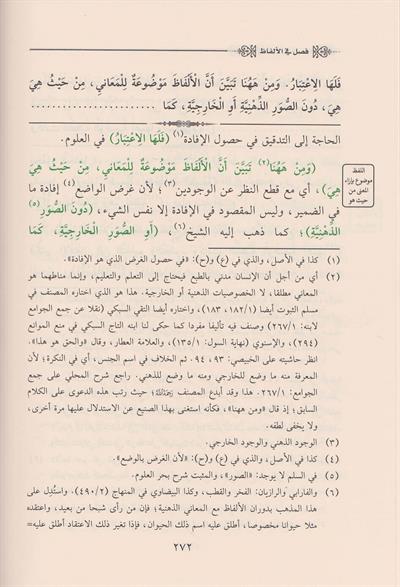 فصل في الألفاظ
فَلَهَا الِاعْتِبَارُ. وَمِنْ هَهُنَا تَبَيَّنَ أَنَّ الْأَلْفَاظَ مَوْضُوعَةٌ لِلْمَعَانِي، مِنْ حَيْثُ هِيَ
هِيَ، دُونَ الصُّوَرِ الذِّهْنِيَّةِ أَوِ الْخَارِجِيَّةِ، كَمَا ..........................
الحاجة إلى التدقيق في حصول الإفادة(١) (فَلَهَا الِاعْتِبَارُ) في العلوم.
(وَمِنْ هَهُنَا(٢) تَبَيَّنَ أَنَّ الْأَلْفَاظَ مَوْضُوعَةٌ لِلْمَعَانِي، مِنْ حَيْثُ هِيَ
اللفظ
موضوع بإزاء
المعنى من
حيث هو
هِيَ)، أي مع قطع النظر عن الوجودين(٣)؛ لأن غرض الواضع(٤) إفادة ما
في الضمير، وليس المقصود في الإفادة إلا نفس الشيء، (دُونَ الصُّوَرِ(٥)
الذِّهْنِيَّةِ)؛ كما ذهب إليه الشيخ(٦)، (أَوِ الصُّوَرِ الْخَارِجِيَّةِ، كَمَا
(١) كذا في الأصل، والذي في (ع) و(ح): «في حصول الغرض الذي هو الإفادة».
(٢) أي من أجل أن الإنسان مدني بالطبع فيحتاج إلى التعلم والتعليم، وإنما مناطهما هو
المعاني مطلقا، لا الخصوصيات الذهنية أو الخارجية. هذا هو الذي اختاره المصنف في
مسلم الثبوت أيضا (١/١٨٢، ١٨٣)، واختاره أيضا التقي السبكي (نقلا عن جمع الجوامع
لابنه: ١/٢٦٧) وصنف فيه تأليفا مفردا كما حكى لنا ابنه التاج السبكي في منع الموانع
(٢٩٤)، والإسنوي (نهاية السول: ١/١٣٥)، والعلامة العطار، وقال «والحق هو هذا».
انظر حاشيته على الخبيصي: ٩٣، ٩٤. ثم الخلاف في اسم الجنس، أي في النكرة؛ لأن
المعرفة منه ما وضع للخارجي ومنه ما وضع للذهني. راجع شرح المحلي على جمع
الجوامع: ١/٢٦٧. هذا وقد أبدع المصنف رحمه الله؛ حيث رتب هذه الدعوى على الكلام
السابق؛ إذ قال «ومن ههنا»، فكأنه استغنى بهذا الصنيع عن الاستدلال عليها مرة أخرى،
ولا يخفى لطفه.
(٣) الوجود الذهني والوجود الخارجي.
(٤) كذا في الأصل، والذي في (ع) و(ح): «لأن الغرض بالوضع».
(٥) في السلم لا يوجد: «الصور»، والمثبت شرح بحر العلوم.
(٦) والفارابي والرازيان: الفخر والقطب، وكذا البيضاوي في المنهاج (٢/٤٩٠)، واستُدِل على
هذا المذهب بدوران الألفاظ مع المعاني الذهنية؛ فإن من رأى شبحا من بعيد، واعتقده
مثلا حيوانا مخصوصا، أطلق عليه اسم ذلك الحيوان، فإذا تغير ذلك الاعتقاد أطلق عليه=
٢٧٢